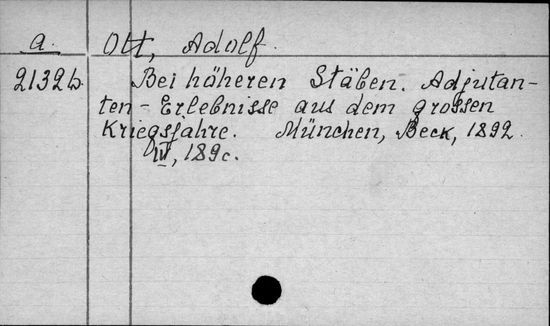 a. Ott, Adolf.
2132b. Bei höheren Stäben. Adjutan-
ten-Erlebnisse aus dem grossen
Kriegsjahre. München, Beck, 1892.
IV, 189c.